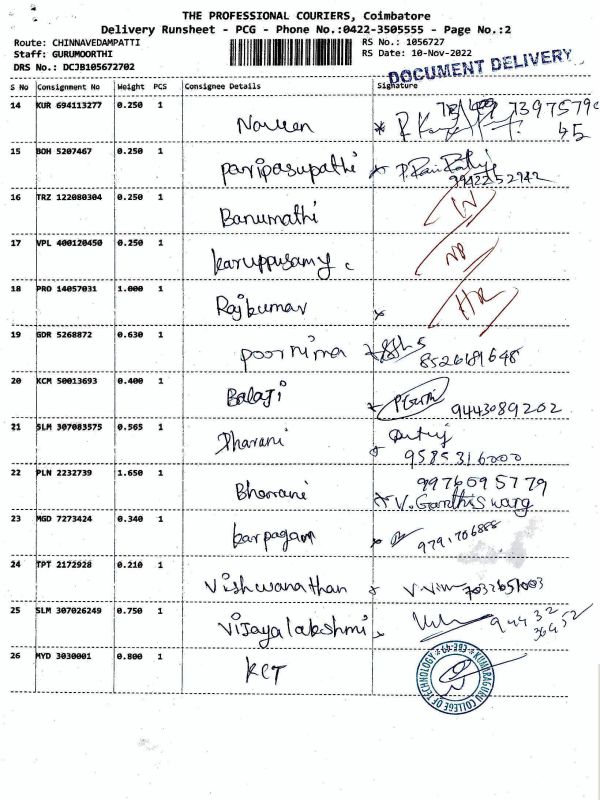 THE PROFESSIONAL COURIERS, Coimbatore
Delivery Runsheet - PCG - Phone No.:0422-3505555 - Page No.:2
Route: CHINNAVEDAMPATTI RS No.: 1056727
Staff: GURUMOORTHI RS Date: 10-Nov-2022
DRS No.: DCJB105672702 DOCUMENT DELIVERY
S No Consignment No Weight PCS Consignee Details Signature
14 KUR 694113277 0.250 1 Naveen
45
15 BOH 5207467 0.250 1 paripasupathi
9942252942
16 TRZ 122080304 0.250 1 Banumathi
17 VPL 400120450 0.250 1 karuppusamy
18 PRO 14057031 1.000 1 Rajkumar
19 GDR 5268872 0.630 1 poornima
8526181648
20 KCM 50013693 0.400 1 Balaji 9443089202
21 SLM 307083575 0.565 1 Dharani
9585316000
22 PLN 2232739 1.650 1 Bharani 9976595779
23 MGD 7273424 0.340 1 karpagam 9791706888
24 TPT 2172928 0.210 1 Vishwanathan 7032651003
25 SLM 307026249 0.750 1 Vijayalakshmi 94432
36452
26 MYD 3030001 0.800 1 KCT
KUMARAGURU COLLEGE OF TECHNOLOGY